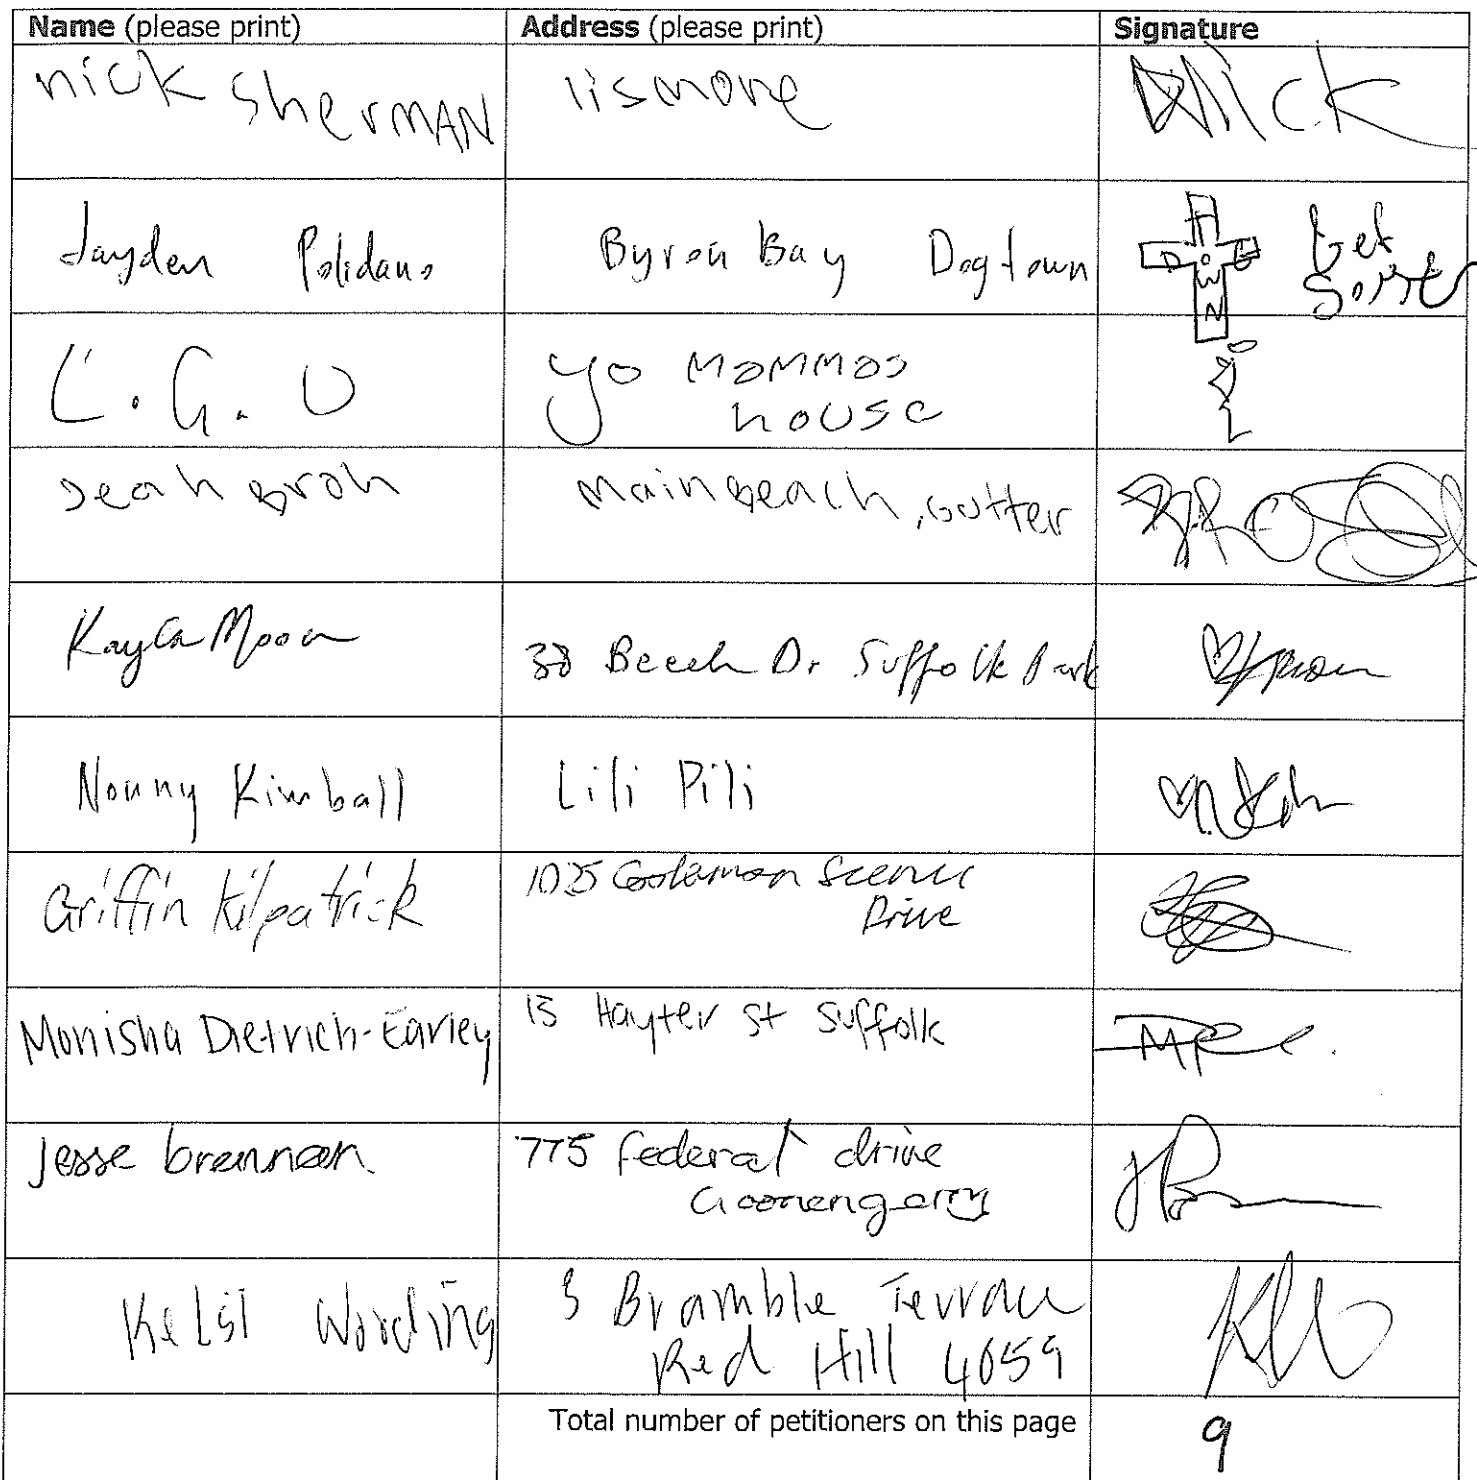 Name (please print) Address (please print) Signature
nick sherMAN lismore Nick
Jayden Polidano Byron Bay Dogtown
L.G.U yo mammas
house
Jeah Broh Main Beach, Gutter
Kayla Moon 38 Beech Dr Suffolk Park
Nonny Kimball Lili Pili
Griffin Kilpatrick 1025 Coolamon Scenic
Drive
Monisha Dietrich-Earley 15 Hayter St Suffolk
Jesse brennan 775 federal drive
Goonengerry
Kelsi Wooding 3 Bramble Terrace
Red Hill 4059
Total number of petitioners on this page 9